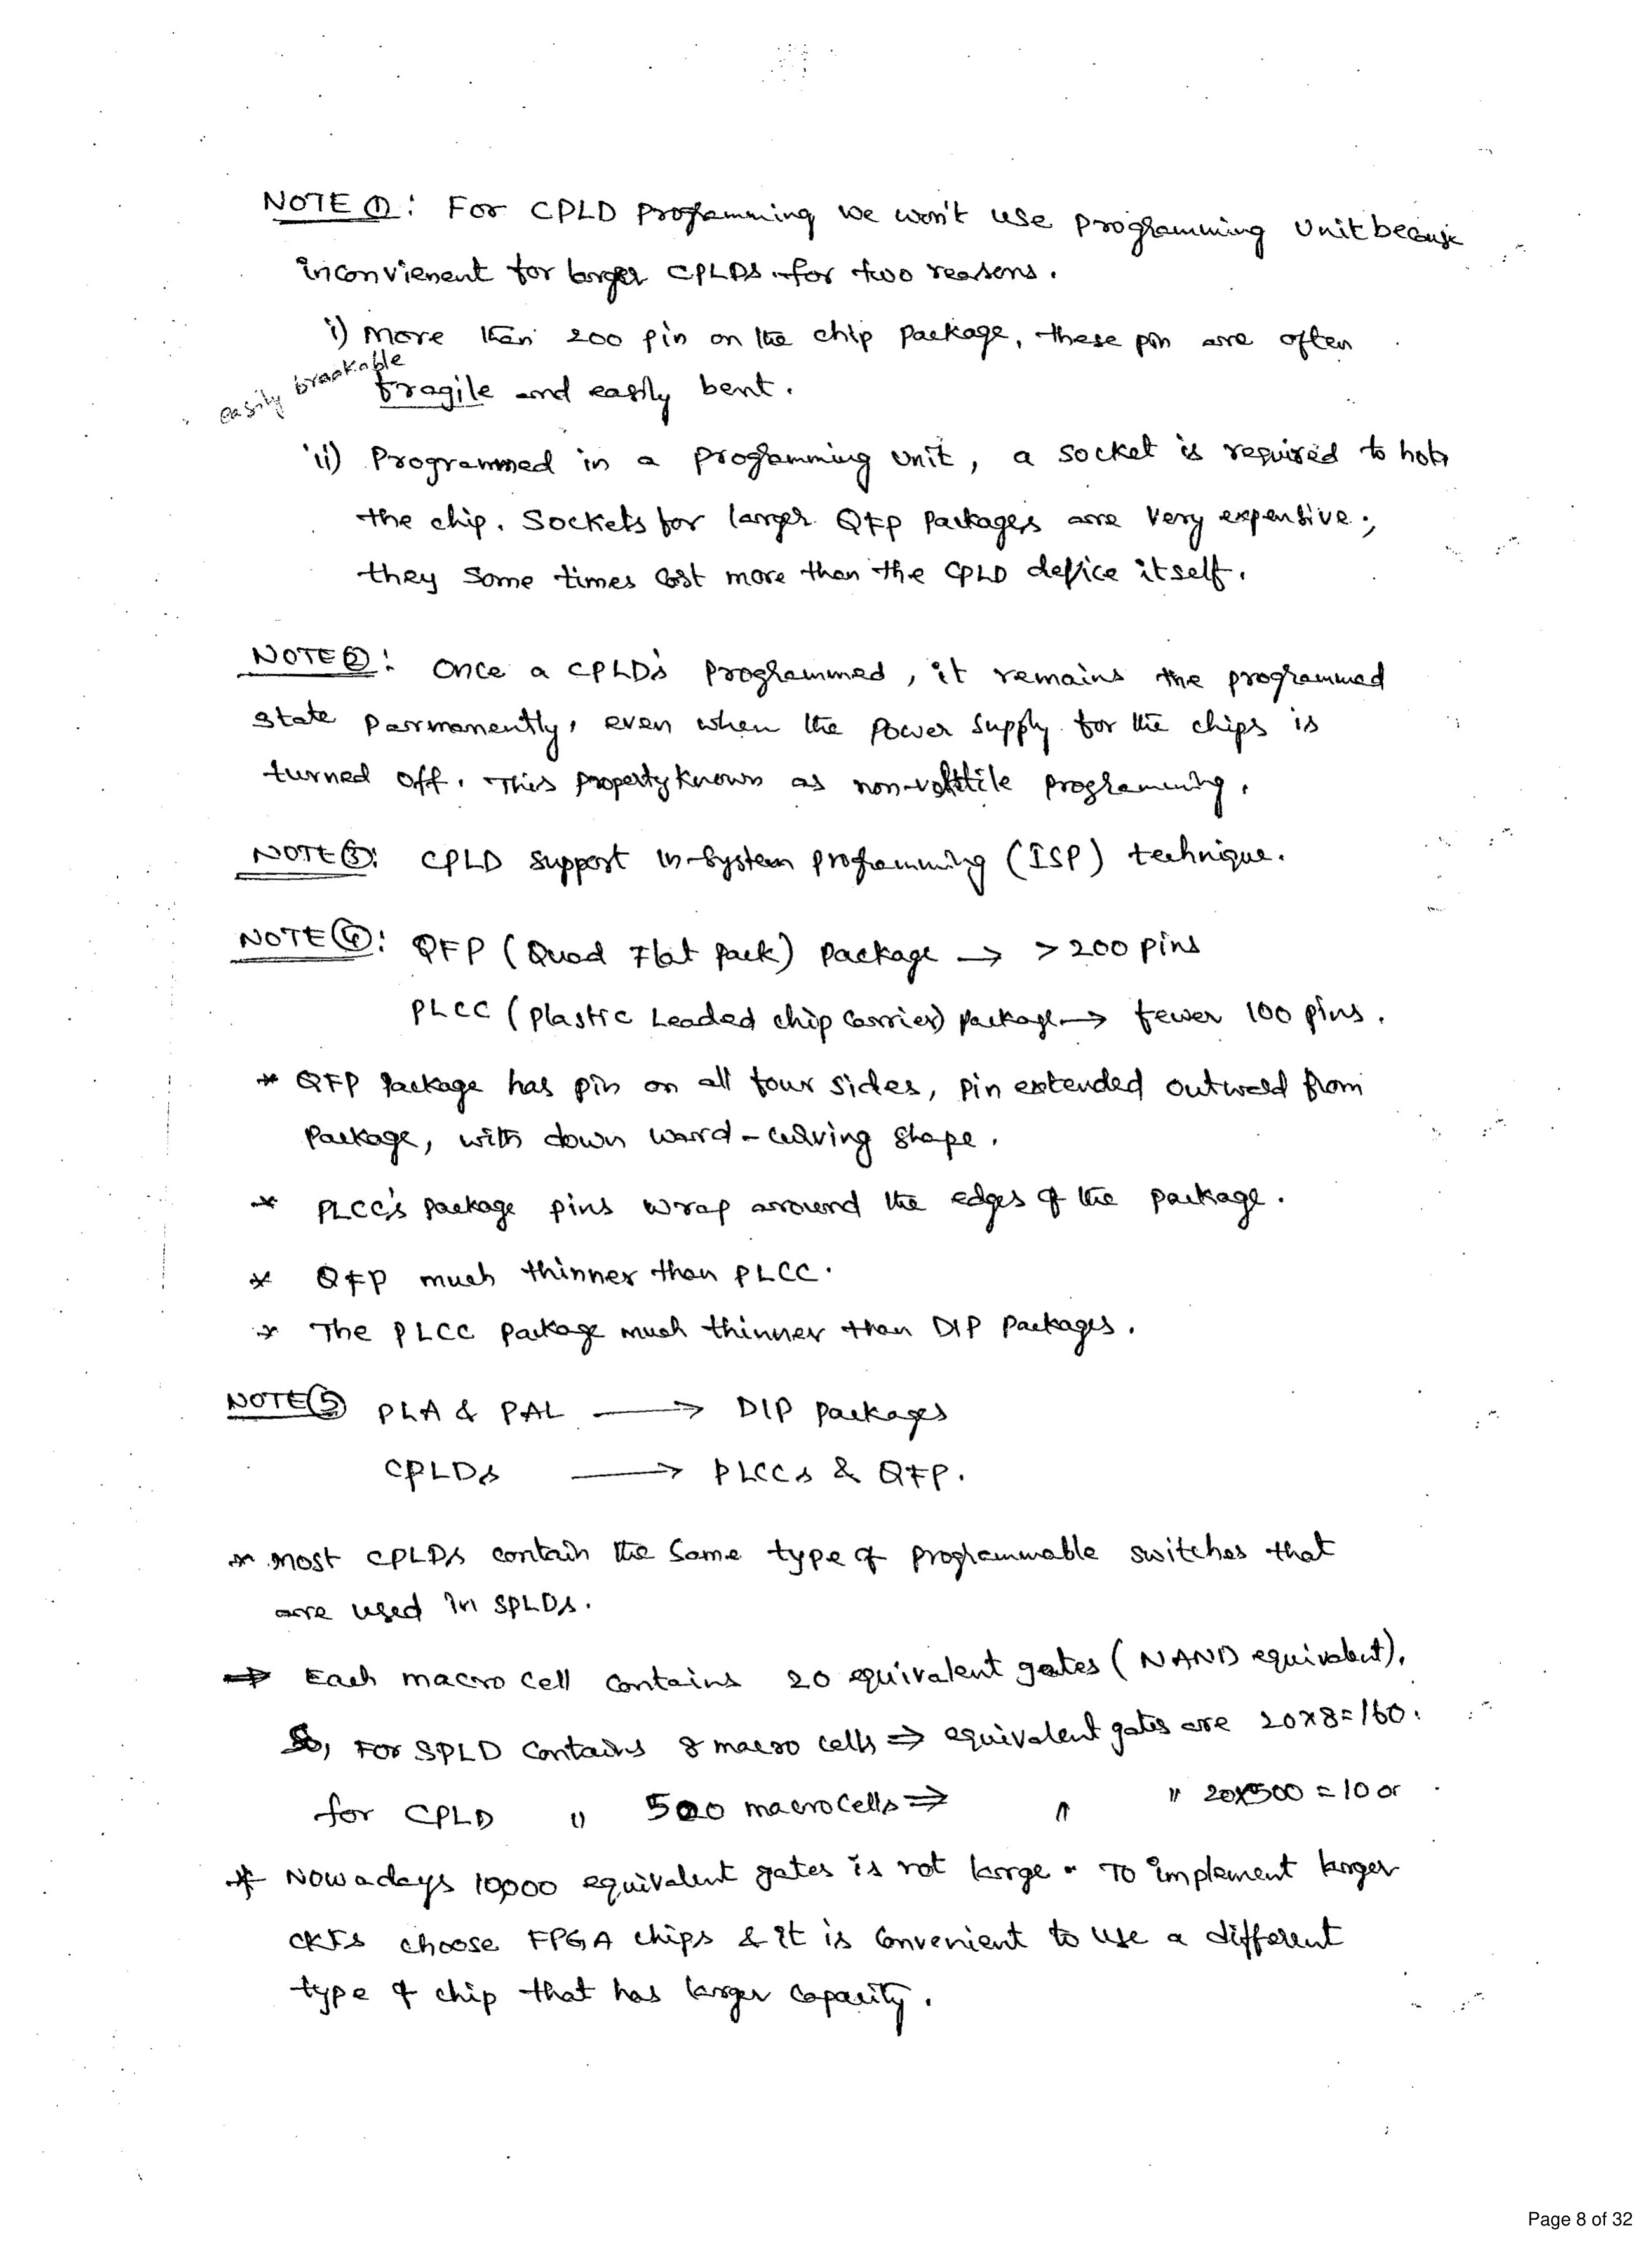 NOTE ①: For CPLD Progamming we won't use programming Unit because
inconvienent for larger CPLDs for two reasons.
i) More than 200 pin on the chip package, these pin are often
easily breakable
fragile and easily bent.
ii) Programmed in a progamming unit, a socket is required to hold
the chip. Sockets for larger QFP Packages are very expensive;
they some times cost more than the CPLD device itself.
NOTE②: Once a CPLD's programmed, it remains the programmed
state parmanently, even when the power supply for the chips is
turned off. This property known as non-voltile programming.
NOTE③: CPLD support in-system programming (ISP) technique.
NOTE④: QFP (Quad Flat Pack) package → > 200 pins
PLCC (Plastic Leaded chip carrier) package → fewer 100 pins.
* QFP package has pin on all four sides, pin extended outward from
Package, with down ward-curving shape.
* PLCC's package pins wrap around the edges of the package.
* QFP much thinner than PLCC.
* The PLCC package much thinner than DIP Packages.
NOTE⑤ PLA & PAL → DIP packages
CPLDs → PLCCs & QFP.
* Most CPLDs contain the same type of programmable switches that
are used in SPLDs.
⇒ Each macro cell contains 20 equivalent gates (NAND equivalent).
So, For SPLD contains 8 macro cells ⇒ equivalent gates are 20x8=160.
for CPLD " 500 macrocells ⇒ " " 20x500 = 10 or
* Nowadays 10,000 equivalent gates is not large. To implement larger
CKTs choose FPGA chips & it is convenient to use a different
type of chip that has larger capacity.
Page 8 of 32